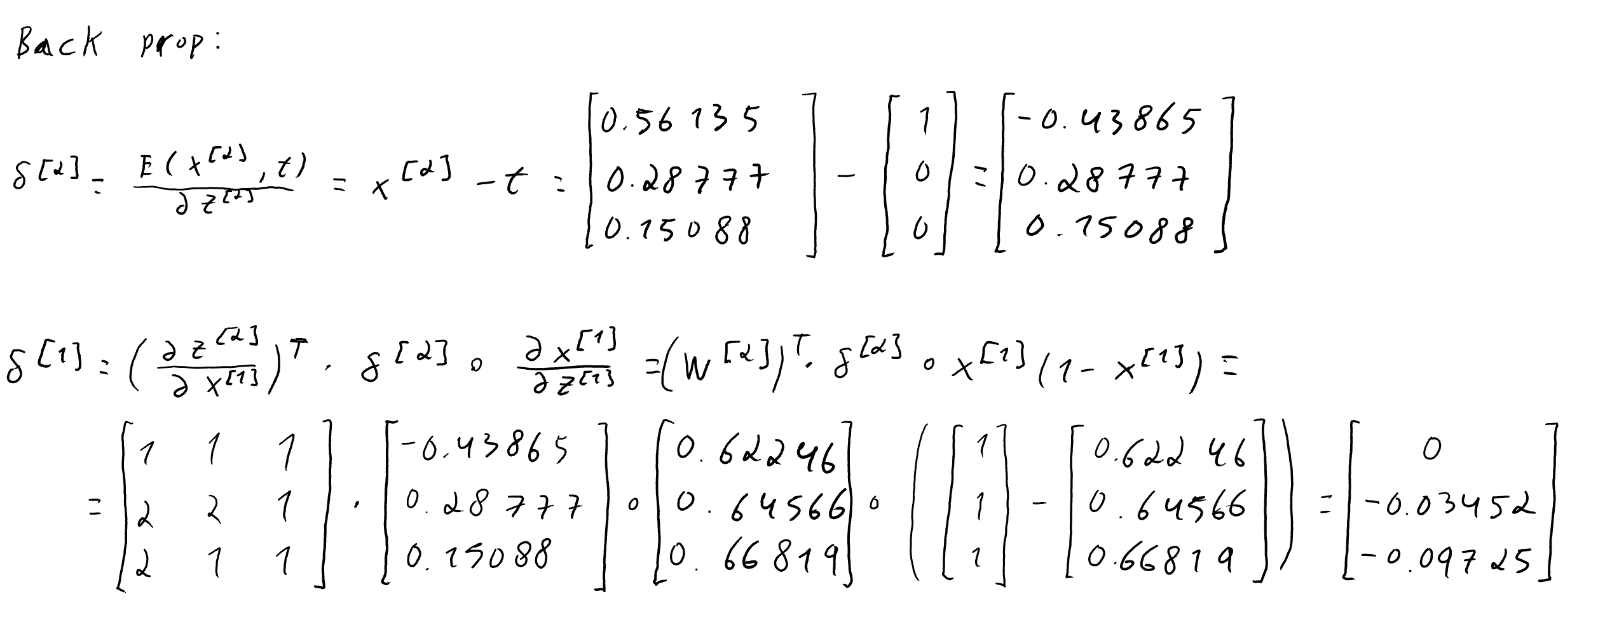 Back prop:
δ^[2] = E(x^[2], t) / ∂z^[2] = x^[2] - t = [0.56135; 0.28777; 0.15088] - [1; 0; 0] = [-0.43865; 0.28777; 0.15088]
δ^[1] = (∂z^[2] / ∂x^[1])^T · δ^[2] ∘ ∂x^[1] / ∂z^[1] = (W^[2])^T · δ^[2] ∘ x^[1] (1 - x^[1]) =
= [1 1 1; 2 2 1; 2 1 1] · [-0.43865; 0.28777; 0.15088] ∘ [0.62246; 0.64566; 0.66819] ∘ ([1; 1; 1] - [0.62246; 0.64566; 0.66819]) = [0; -0.03452; -0.09725]